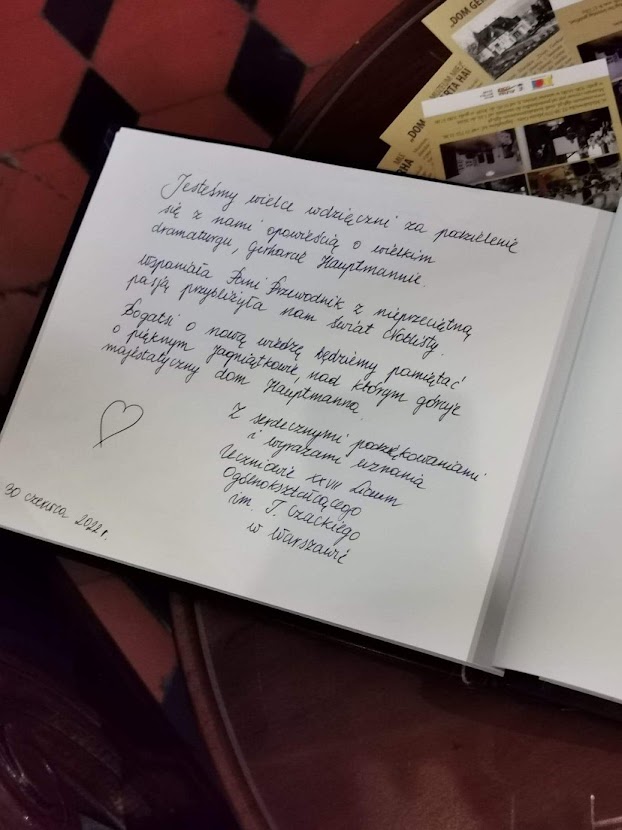 „DOM GE
„DOM
Jesteśmy wielce wdzięczni za podzielenie
się z nami opowieścią o wielkim
dramaturgu, gerharcie Hauptmannie.
Wspaniała Pani Przewodnik z nieprzeciętną
pasją przybliżyła nam świat Noblisty.
Bogatsi o nową wiedzę będziemy pamiętać
o pięknym Jagniątkowie, nad którym góruje
majestatyczny dom Hauptmanna.
Z serdecznymi podziękowaniami
i wyrazami uznania
Uczniowie XXVII Liceum
Ogólnokształcącego
im. T. Czackiego
w Warszawie
30 czerwca 2022 r.